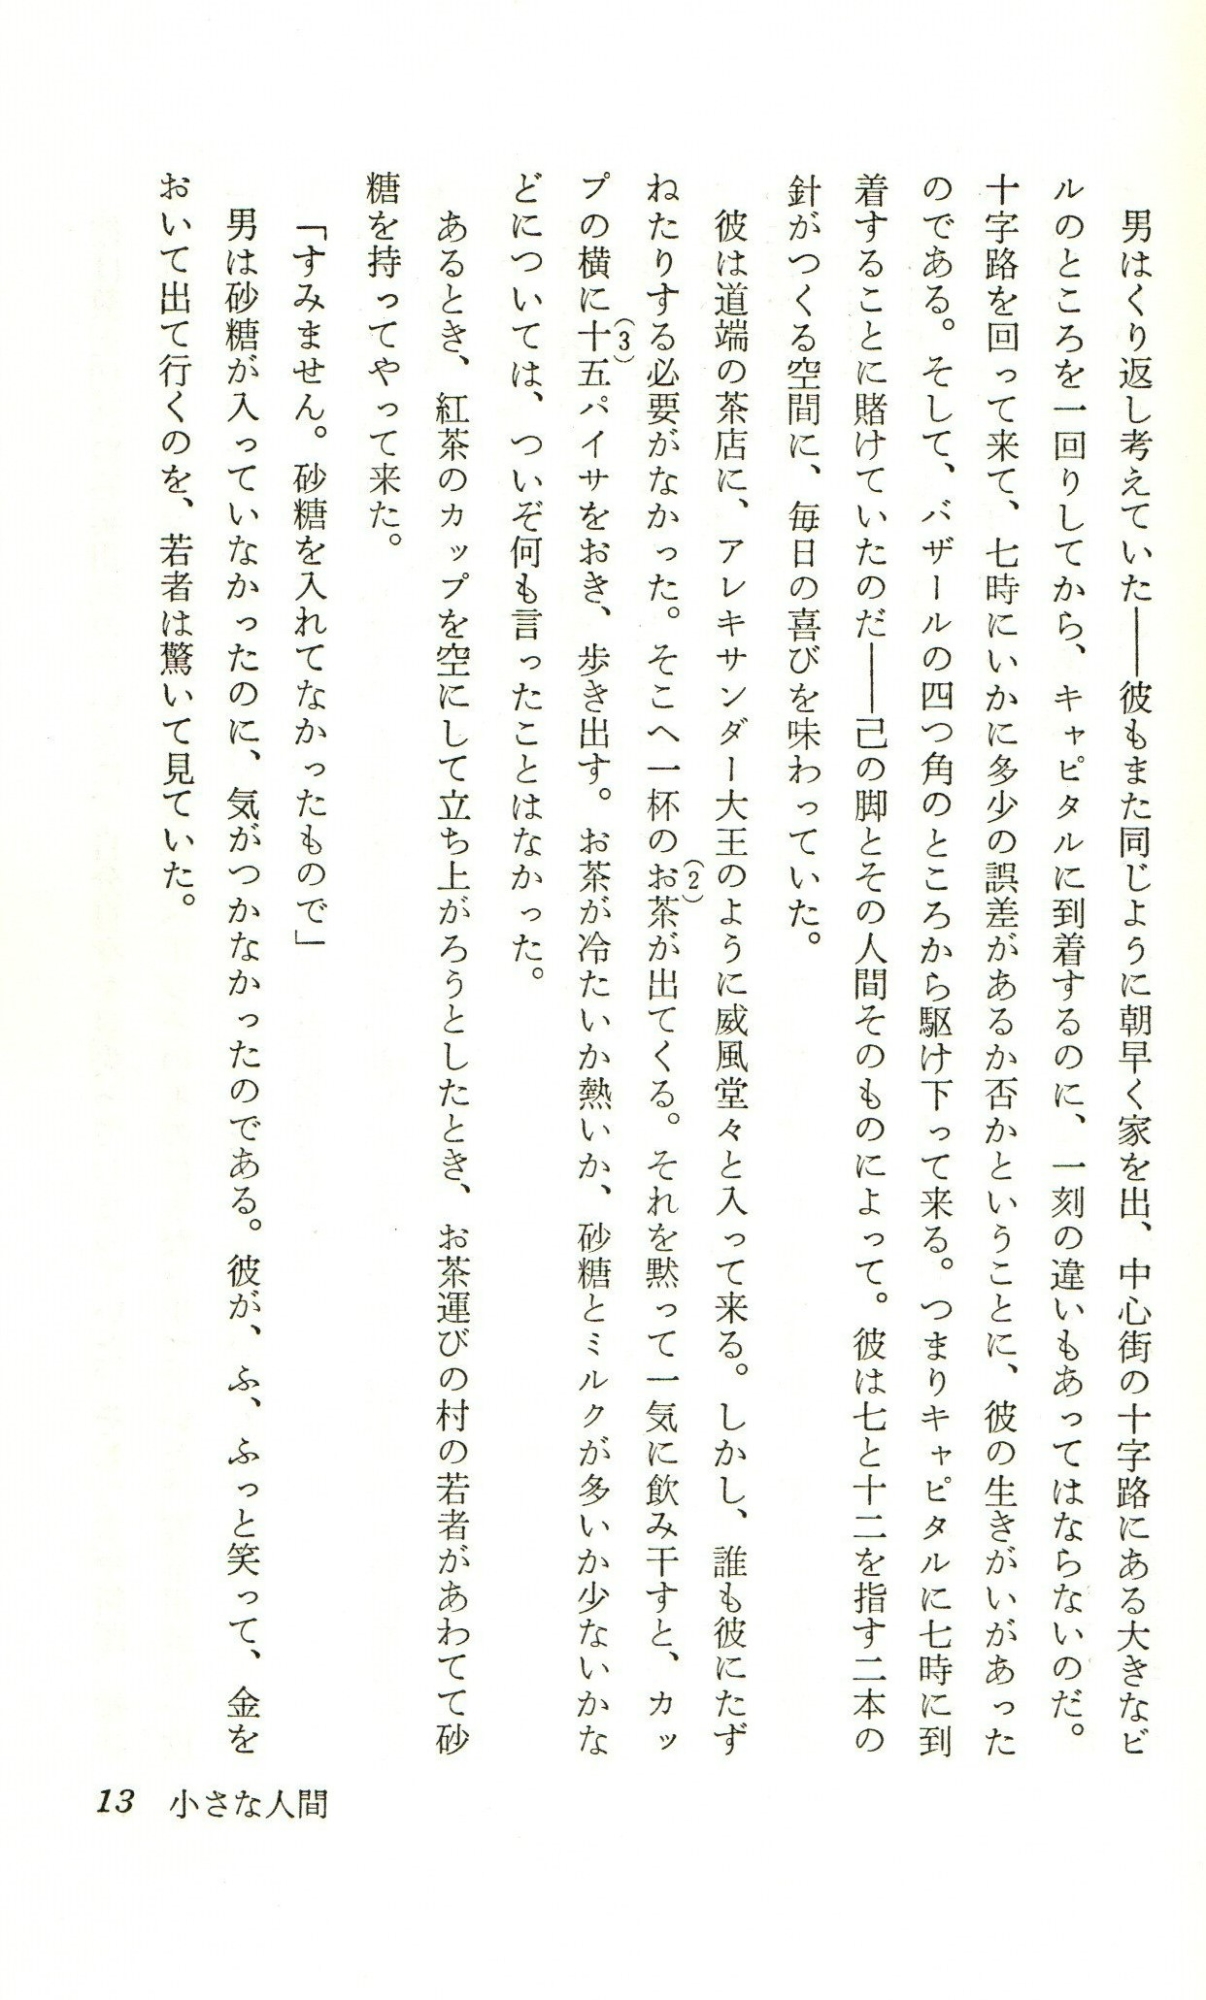 男はくり返し考えていた――彼もまた同じように朝早く家を出、中心街の十字路にある大きなビ
ルのところを一回りしてから、キャピタルに到着するのに、一刻の違いもあってはならないのだ。
十字路を回って来て、七時にいかに多少の誤差があるか否かということに、彼の生きがいがあった
のである。そして、バザールの四つ角のところから駆け下って来る。つまりキャピタルに七時に到
着することに賭けていたのだ――己の脚とその人間そのものによって。彼は七と十二を指す二本の
針がつくる空間に、毎日の喜びを味わっていた。
彼は道端の茶店に、アレキサンダー大王のように威風堂々と入って来る。しかし、誰も彼にたず
ねたりする必要がなかった。そこへ一杯のお茶(2)が出てくる。それを黙って一気に飲み干すと、カッ
プの横に十五パイサ(3)をおき、歩き出す。お茶が冷たいか熱いか、砂糖とミルクが多いか少ないかな
どについては、ついぞ何も言ったことはなかった。
あるとき、紅茶のカップを空にして立ち上がろうとしたとき、お茶運びの村の若者があわてて砂
糖を持ってやって来た。
「すみません。砂糖を入れてなかったもので」
男は砂糖が入っていなかったのに、気がつかなかったのである。彼が、ふ、ふっと笑って、金を
おいて出て行くのを、若者は驚いて見ていた。
13 小さな人間